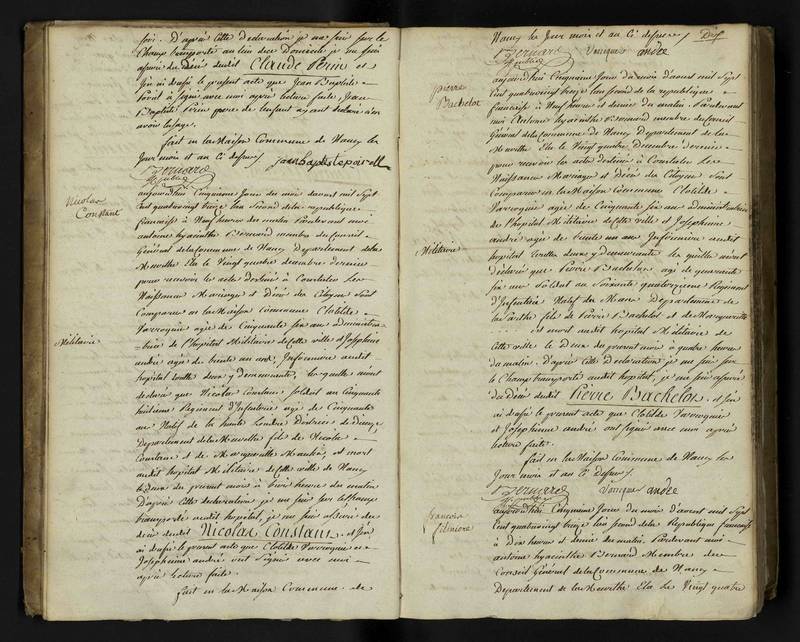 foi. D'après cette déclaration je me suis sur le
Champ transporté au lieu dece Domicile je me suis
assuré du décès dudit Claude Perin et
j'en ai dressé le présent acte que Jean Baptiste
Poirot a signé avec moi après lecture faite, Jean
Baptiste Perin père de l'enfant ayant déclaré n'en
avoir l'usage.
fait en la Maison Commune de Nancy les
Jour mois et an ci dessus / jean baptiste poirot
Bernard
off. public
Nicolas
Constant
aujourd'hui Cinquieme Jour du mois daoust mil Sept
Cent quatrevingt treize l'an Second dela republique
française à Neuf heures du matin Pardevant moi
antoine hyacinthe Bernard membre du Conseil
Général dela Commune de Nancy Departement dela
Meurthe Elu le Vingt quatre decembre dernier
pour recevoir les actes destinés à Constater les
Naissances Mariages et Décès des Citoyens Sont
Comparus en la Maison Commune Clotilde
Varroquie agée de Cinquante six ans administra
trice de l'hopital Militaire de Cette ville et Josephine
andré agée de trente un ans, Infirmiere audit
hopital toutte deux y demeurante, lesquelle m'ont
déclaré que Nicolas Constant soldat au Cinquante
huitieme Regiment d'Infanterie agé de Cinquante
ans Natif de la haute
Departement dela Meurthe fils de Nicolas
Constant et de Marguerite est mort
audit hopital Militaire de Cette ville de Nancy
le deux du present mois à trois heures du matin
D'après cette déclaration je me suis sur le Champ
transporté audit hopital, je me suis assuré du
décès dudit Nicolas Constant. et j'en
ai dressé le présent acte que Clotilde Varroquie et
Josephine andré ont Signés avec moi
après lecture faite.
fait en la Maison Commune de
Militaire
Nancy les Jour mois et an Ci dessus /
Bernard Vonique andré
off. public
pierre
Bachelot
aujourd'hui Cinquieme Jour du mois d'aoust mil Sept
Cent quatrevingt treize l'an Second de la republique
française à Neuf heures et demie du matin Pardevant
moi Antoine hyacinthe Bernard membre du Conseil
Général dela Commune de Nancy Departement dela
Meurthe Elu le Vingt quatre Decembre dernier
pour recevoir les actes destinés à Constater les
Naissances Mariages et Décès des Citoyens Sont
Comparues en la Maison Commune Clotilde
Varroquie agée de Cinquante six ans administratrice
de l'hopital Militaire de Cette ville et Josephine
andré agée de trente un ans Infirmiere audit
hopital toutes deux y demeurante les quelle m'ont
déclaré que Pierre Bachelot agé de quarante
six ans Soldat au Soixante quatorzieme Regiment
d'Infanterie Natif du Mans Departement de
la Sarthe fils de Pierre Bachelot et de Marguerite
est mort audit hopital Militaire de
Cette ville le Deux du present mois à quatre heures
du matin. D'après cette Déclaration je me suis sur
le Champ transporté audit hopital, je me suis assuré
du Décès dudit Pierre Bachelot. et j'en
ai dressé le présent acte que Clotilde Varroquie
et Josephine andré ont signé avec moi après
lecture faite.
fait en la Maison Commune de Nancy les
Jour mois et an Ci dessus /
Bernard Vonique andré
off. public
Militaire
françois
aujourd'hui Cinquieme Jour du mois d'aoust mil Sept
Cent quatrevingt treize l'an Second dela Republique française
à Dix heures et demie du matin. Pardevant moi
antoine hyacinthe Bernard Membre du
Conseil Général dela Commune de Nancy
Departement de la Meurthe Elu le Vingt quatre